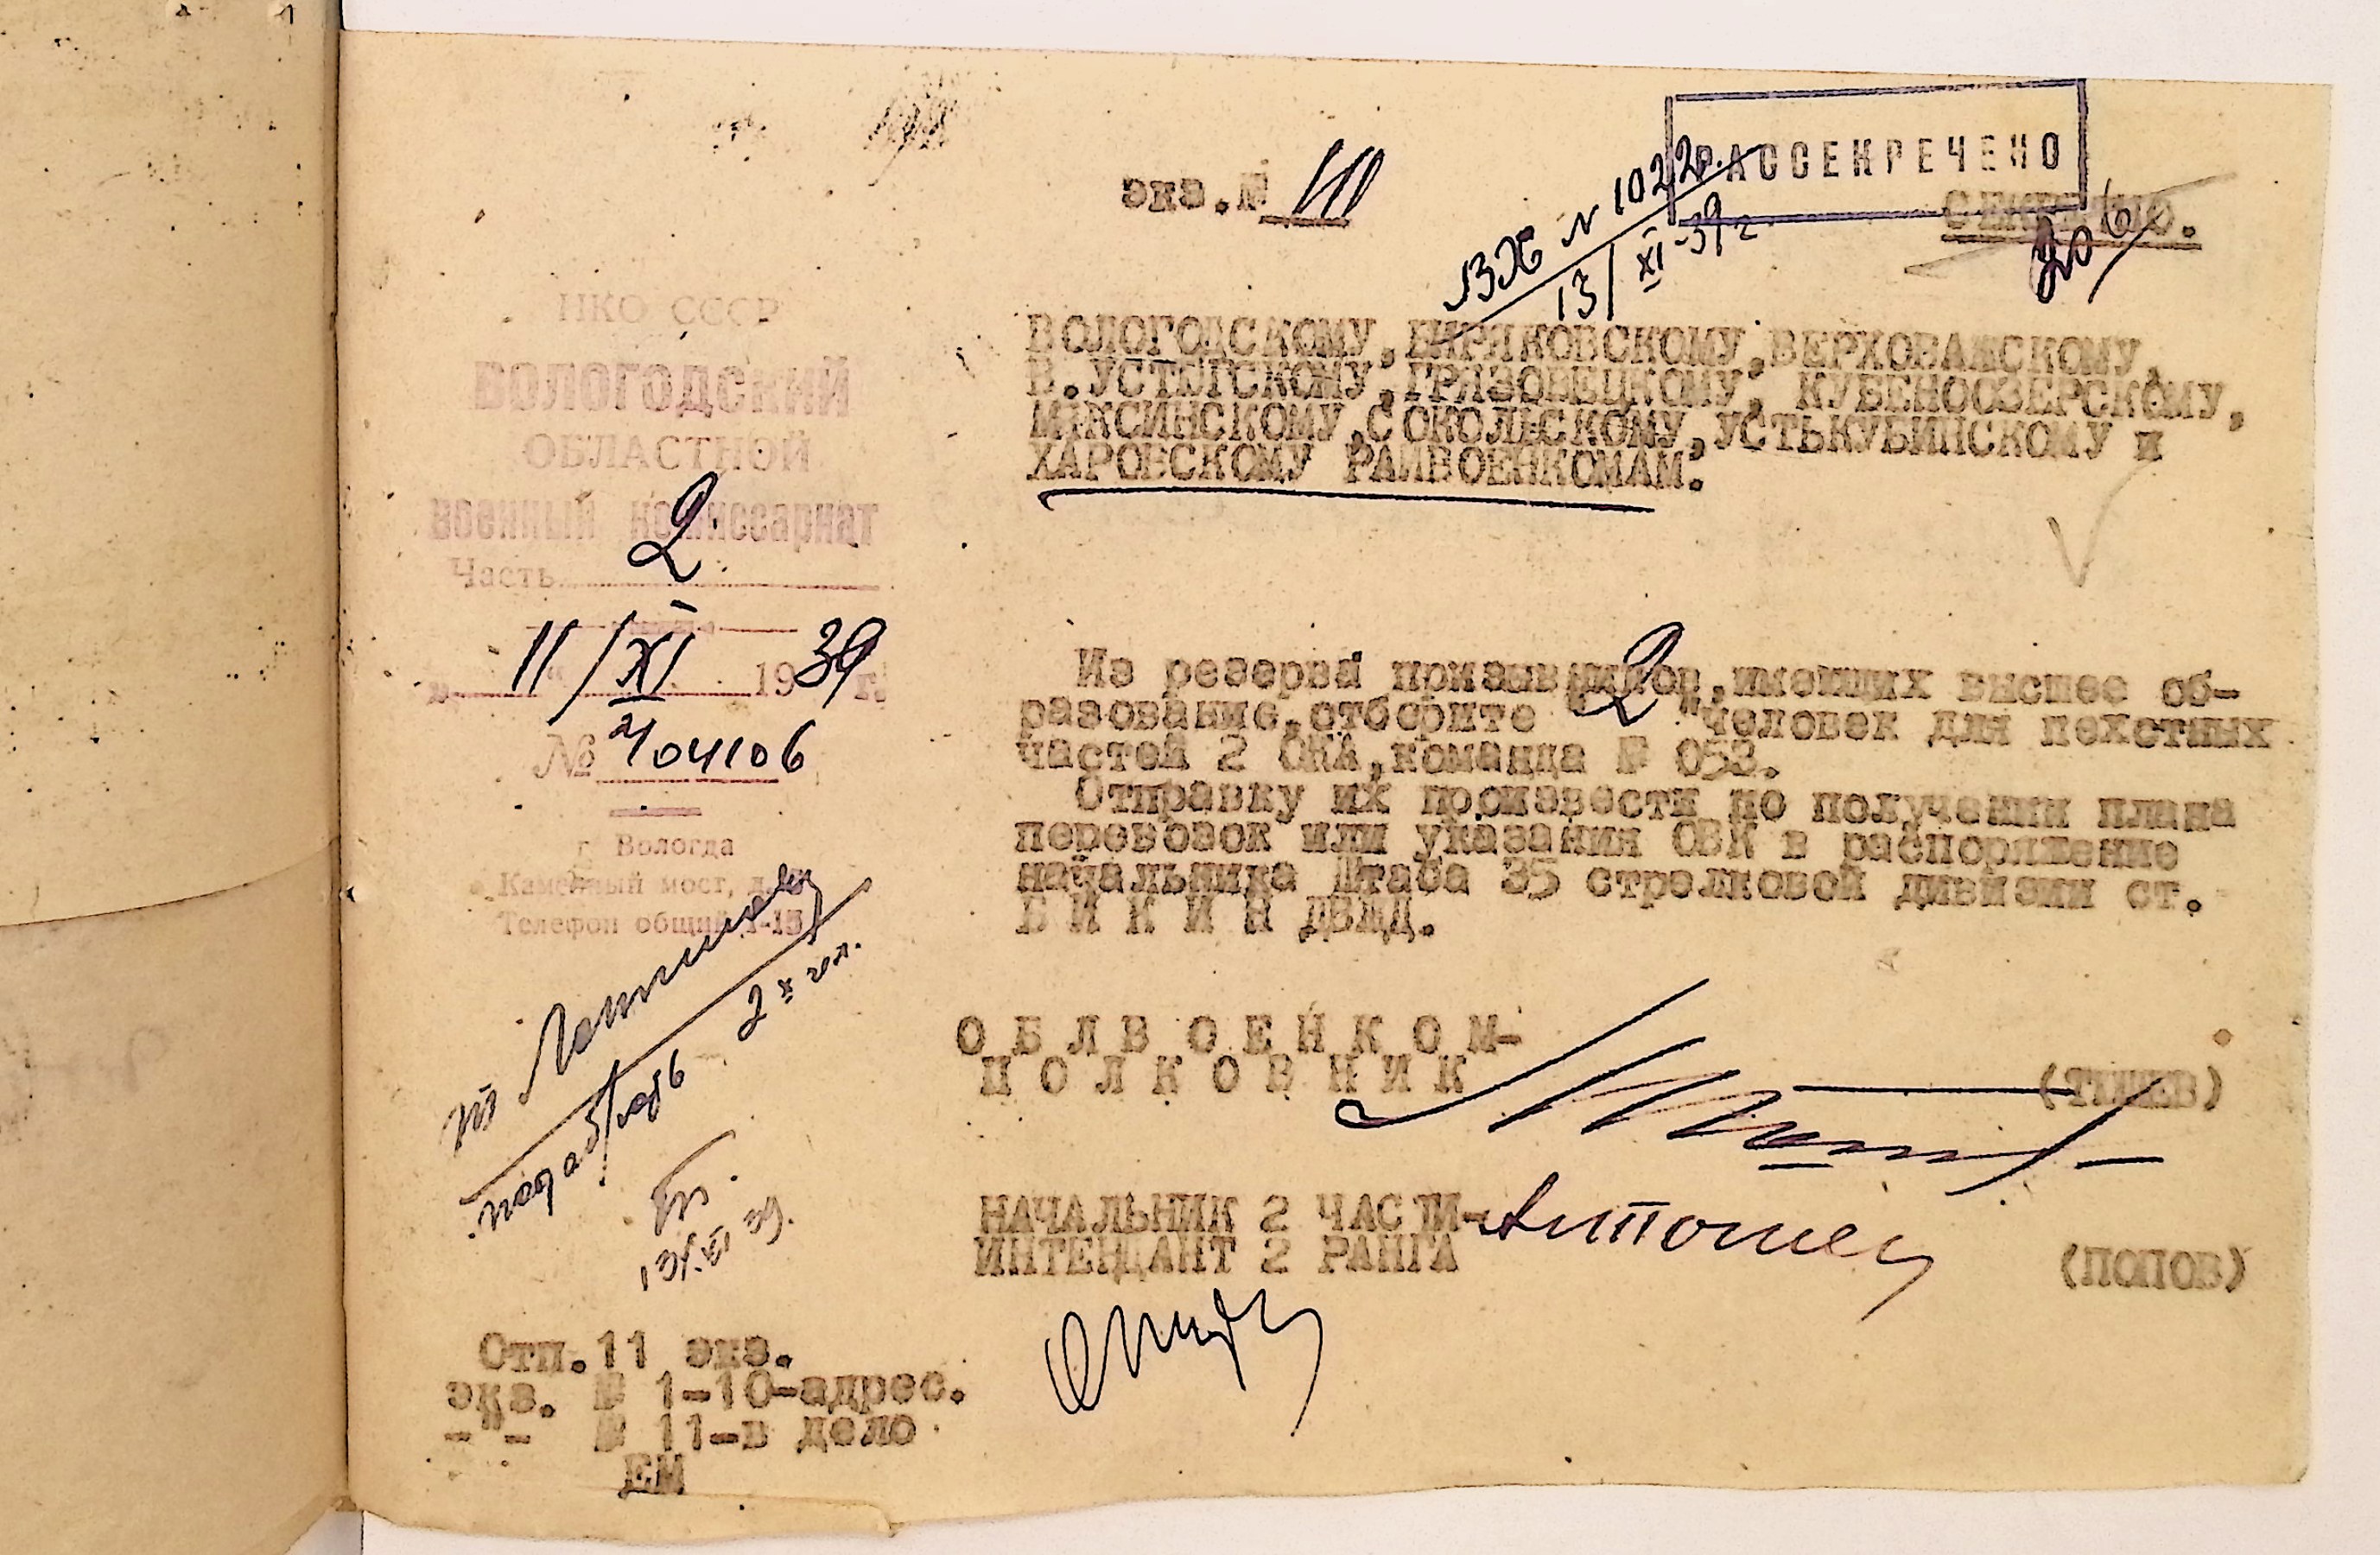 экз.№ 10
РАССЕКРЕЧЕНО
СЕКРЕТНО.
206
Вх N 1022
13/XI-39г
НКО СССР
ВОЛОГОДСКИЙ
ОБЛАСТНОЙ
военный комиссариат
Часть 2
11/XI 1939 г.
№
г. Вологда
Каменный мост,
Телефон общий
ВОЛОГОДСКОМУ, БИРЯКОВСКОМУ, ВЕРХОВАЖСКОМУ,
В.УСТЮГСКОМУ, ГРЯЗОВЕЦКОМУ, КУБЕНООЗЕРСКОМУ,
МЯКСИНСКОМУ, СОКОЛЬСКОМУ, УСТЬКУБИНСКОМУ и
ХАРОВСКОМУ РАЙВОЕНКОМАМ.
Из резерва призывников, имеющих высшее об-
разование, отберите "2" человек для пехотных
частей 2 ОКА, команда № 053.
Отправку их произвести по получении плана
перевозок или указания ОВК в распоряжение
начальника Штаба 35 стрелковой дивизии ст.
Б И К И Н ДВЖД.
подобрать 2х чел.
13/XI 39.
О Б Л В О Е Н К О М-
П О Л К О В Н И К
(ТИШЕВ)
НАЧАЛЬНИК 2 ЧАСТИ-
ИНТЕНДАНТ 2 РАНГА
(ПОПОВ)
Отп.11 экз.
экз. № 1-10-адрес.
-"- № 11-в дело
ЕМ